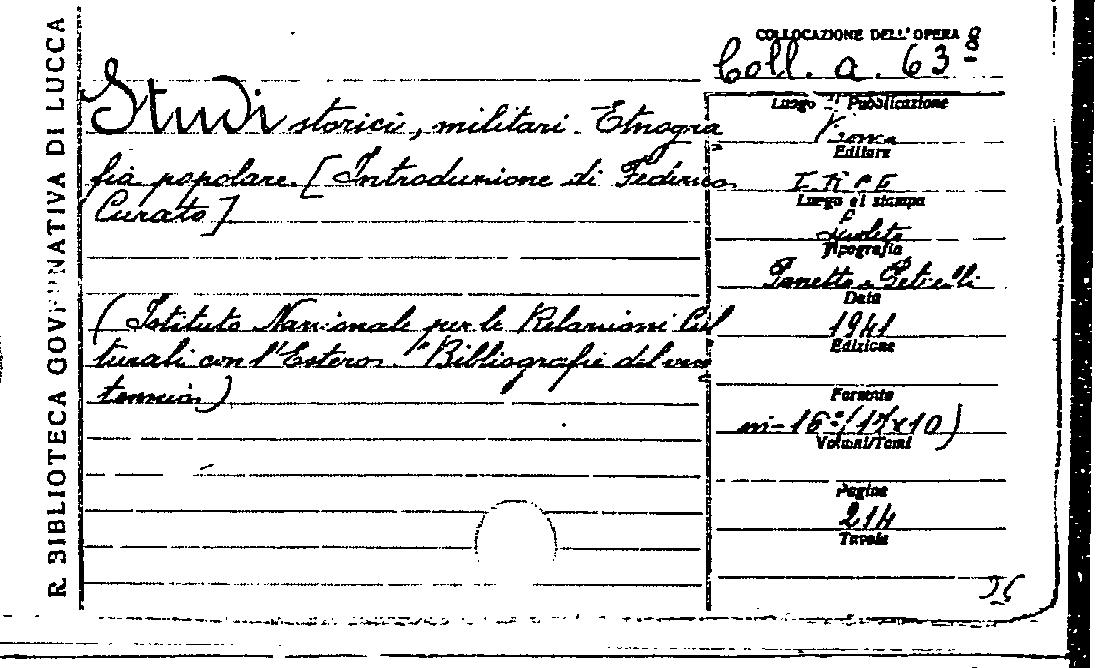 R. BIBLIOTECA GOVERNATIVA DI LUCCA
COLLOCAZIONE DELL'OPERA
Coll. a. 63-8
Studi storici, militari. Etnogra
fia popolare. [Introduzione di Federico
Curato]
(Istituto Nazionale per le Relazioni Cul
turali con l'Estero. "Bibliografie del ven
tennio)
Luogo di Pubblicazione
Editore
I.R.C.E.
Luogo di stampa
Spoleto
Tipografia
Panetto e Petrelli
Data
1941
Edizione
Formato
in-16°(17x10)
Volumi/Tomi
Pagine
214
Tavole